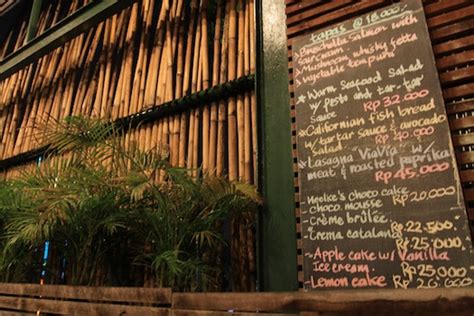 tapas @ 18.000.-
* Bruschetta Salmon with
sarcmann
* Mushroom whisky fetta
* vegetable tempura
* Warm Seafood Salad
w/ pesto and tar-tar
sauce Rp 32.000
* Californian fish bread
w/ tartar sauce & avocado
salad Rp 40.000
* Lasagna ViaVia w/
meat & roasted paprika
Rp 45.000
- Meelke's choco cake Rp 20.000
- choco mousse
- Crème brûlée Rp 22.500
- Crema catalana Rp 25.000
- Apple cake w/ Vanilla
Ice cream Rp 25.000
- Lemon cake Rp 20.000